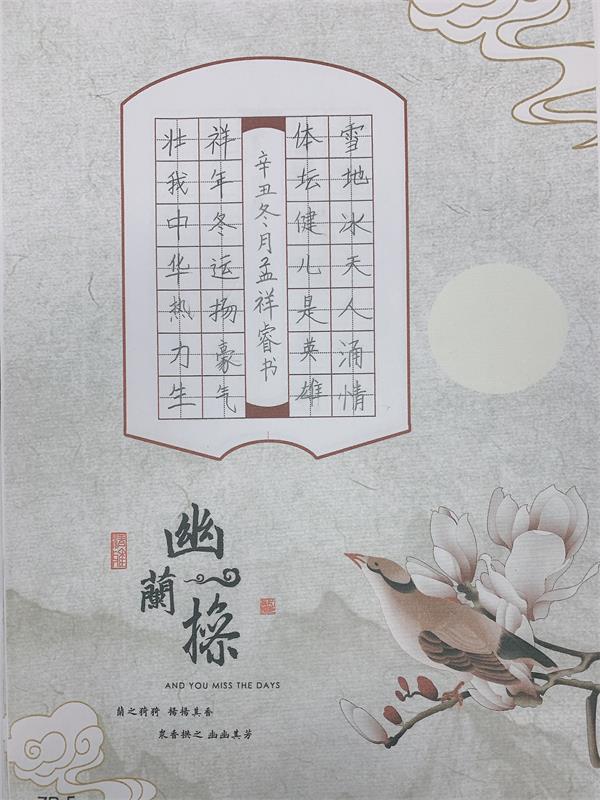 雪地冰天人涌情
体坛健儿是英雄
辛丑冬月孟祥睿书
祥年冬运扬豪气
壮我中华热力生
幽蘭操
AND YOU MISS THE DAYS
蘭之猗猗 揚揚其香
衆香拱之 幽幽其芳